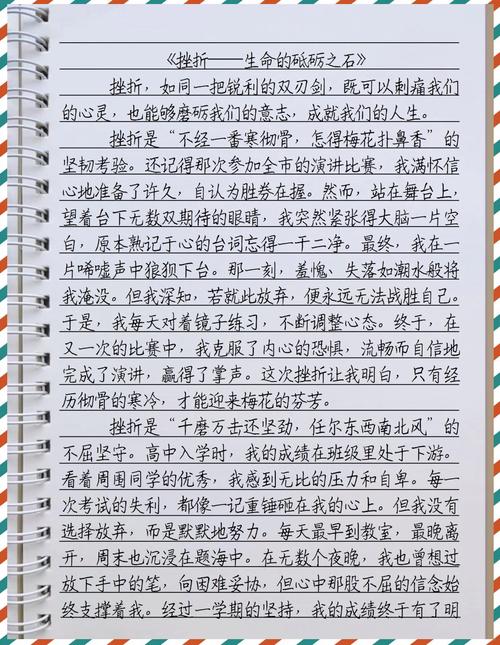 《挫折——生命的砥砺之石》
挫折，如同一把锐利的双刃剑，既可以刺痛我们
的心灵，也能够磨砺我们的意志，成就我们的人生。
挫折是“不经一番寒彻骨，怎得梅花扑鼻香”的
坚韧考验。还记得那次参加全市的演讲比赛，我满怀信
心地准备了许久，自认为胜券在握。然而，站在舞台上，
望着台下无数双期待的眼睛，我突然紧张得大脑一片空
白，原本熟记于心的台词忘得一干二净。最终，我在一
片唏嘘声中狼狈下台。那一刻，羞愧、失落如潮水般将
我淹没。但我深知，若就此放弃，便永远无法战胜自己。
于是，我每天对着镜子练习，不断调整心态。终于，在
又一次的比赛中，我克服了内心的恐惧，流畅而自信地
完成了演讲，赢得了掌声。这次挫折让我明白，只有经
历彻骨的寒冷，才能迎来梅花的芬芳。
挫折是“千磨万击还坚劲，任尔东西南北风”的
不屈坚守。高中入学时，我的成绩在班级里处于下游。
看着周围同学的优秀，我感到无比的压力和自卑。每一
次考试的失利，都像一记重锤砸在我的心上。但我没有
选择放弃，而是默默地努力。每天最早到教室，最晚离
开，周末也沉浸在题海中。在无数个夜晚，我也曾想过
放下手中的笔，向困难妥协，但心中那股不屈的信念始
终支撑着我。经过一学期的坚持，我的成绩终于有了明